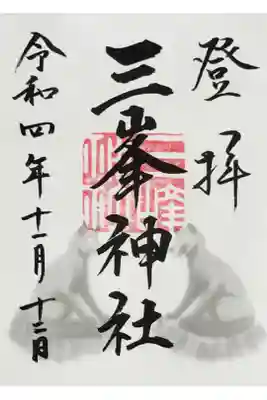 登拝
三峯神社
令和四年十一月十二日